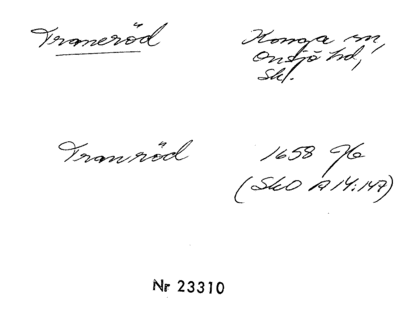 Traneröd
Konga sn,
Onsjö hd,
Skl.
Tranröd
1658 Jb
(SkO A 14:147)
Nr 23310